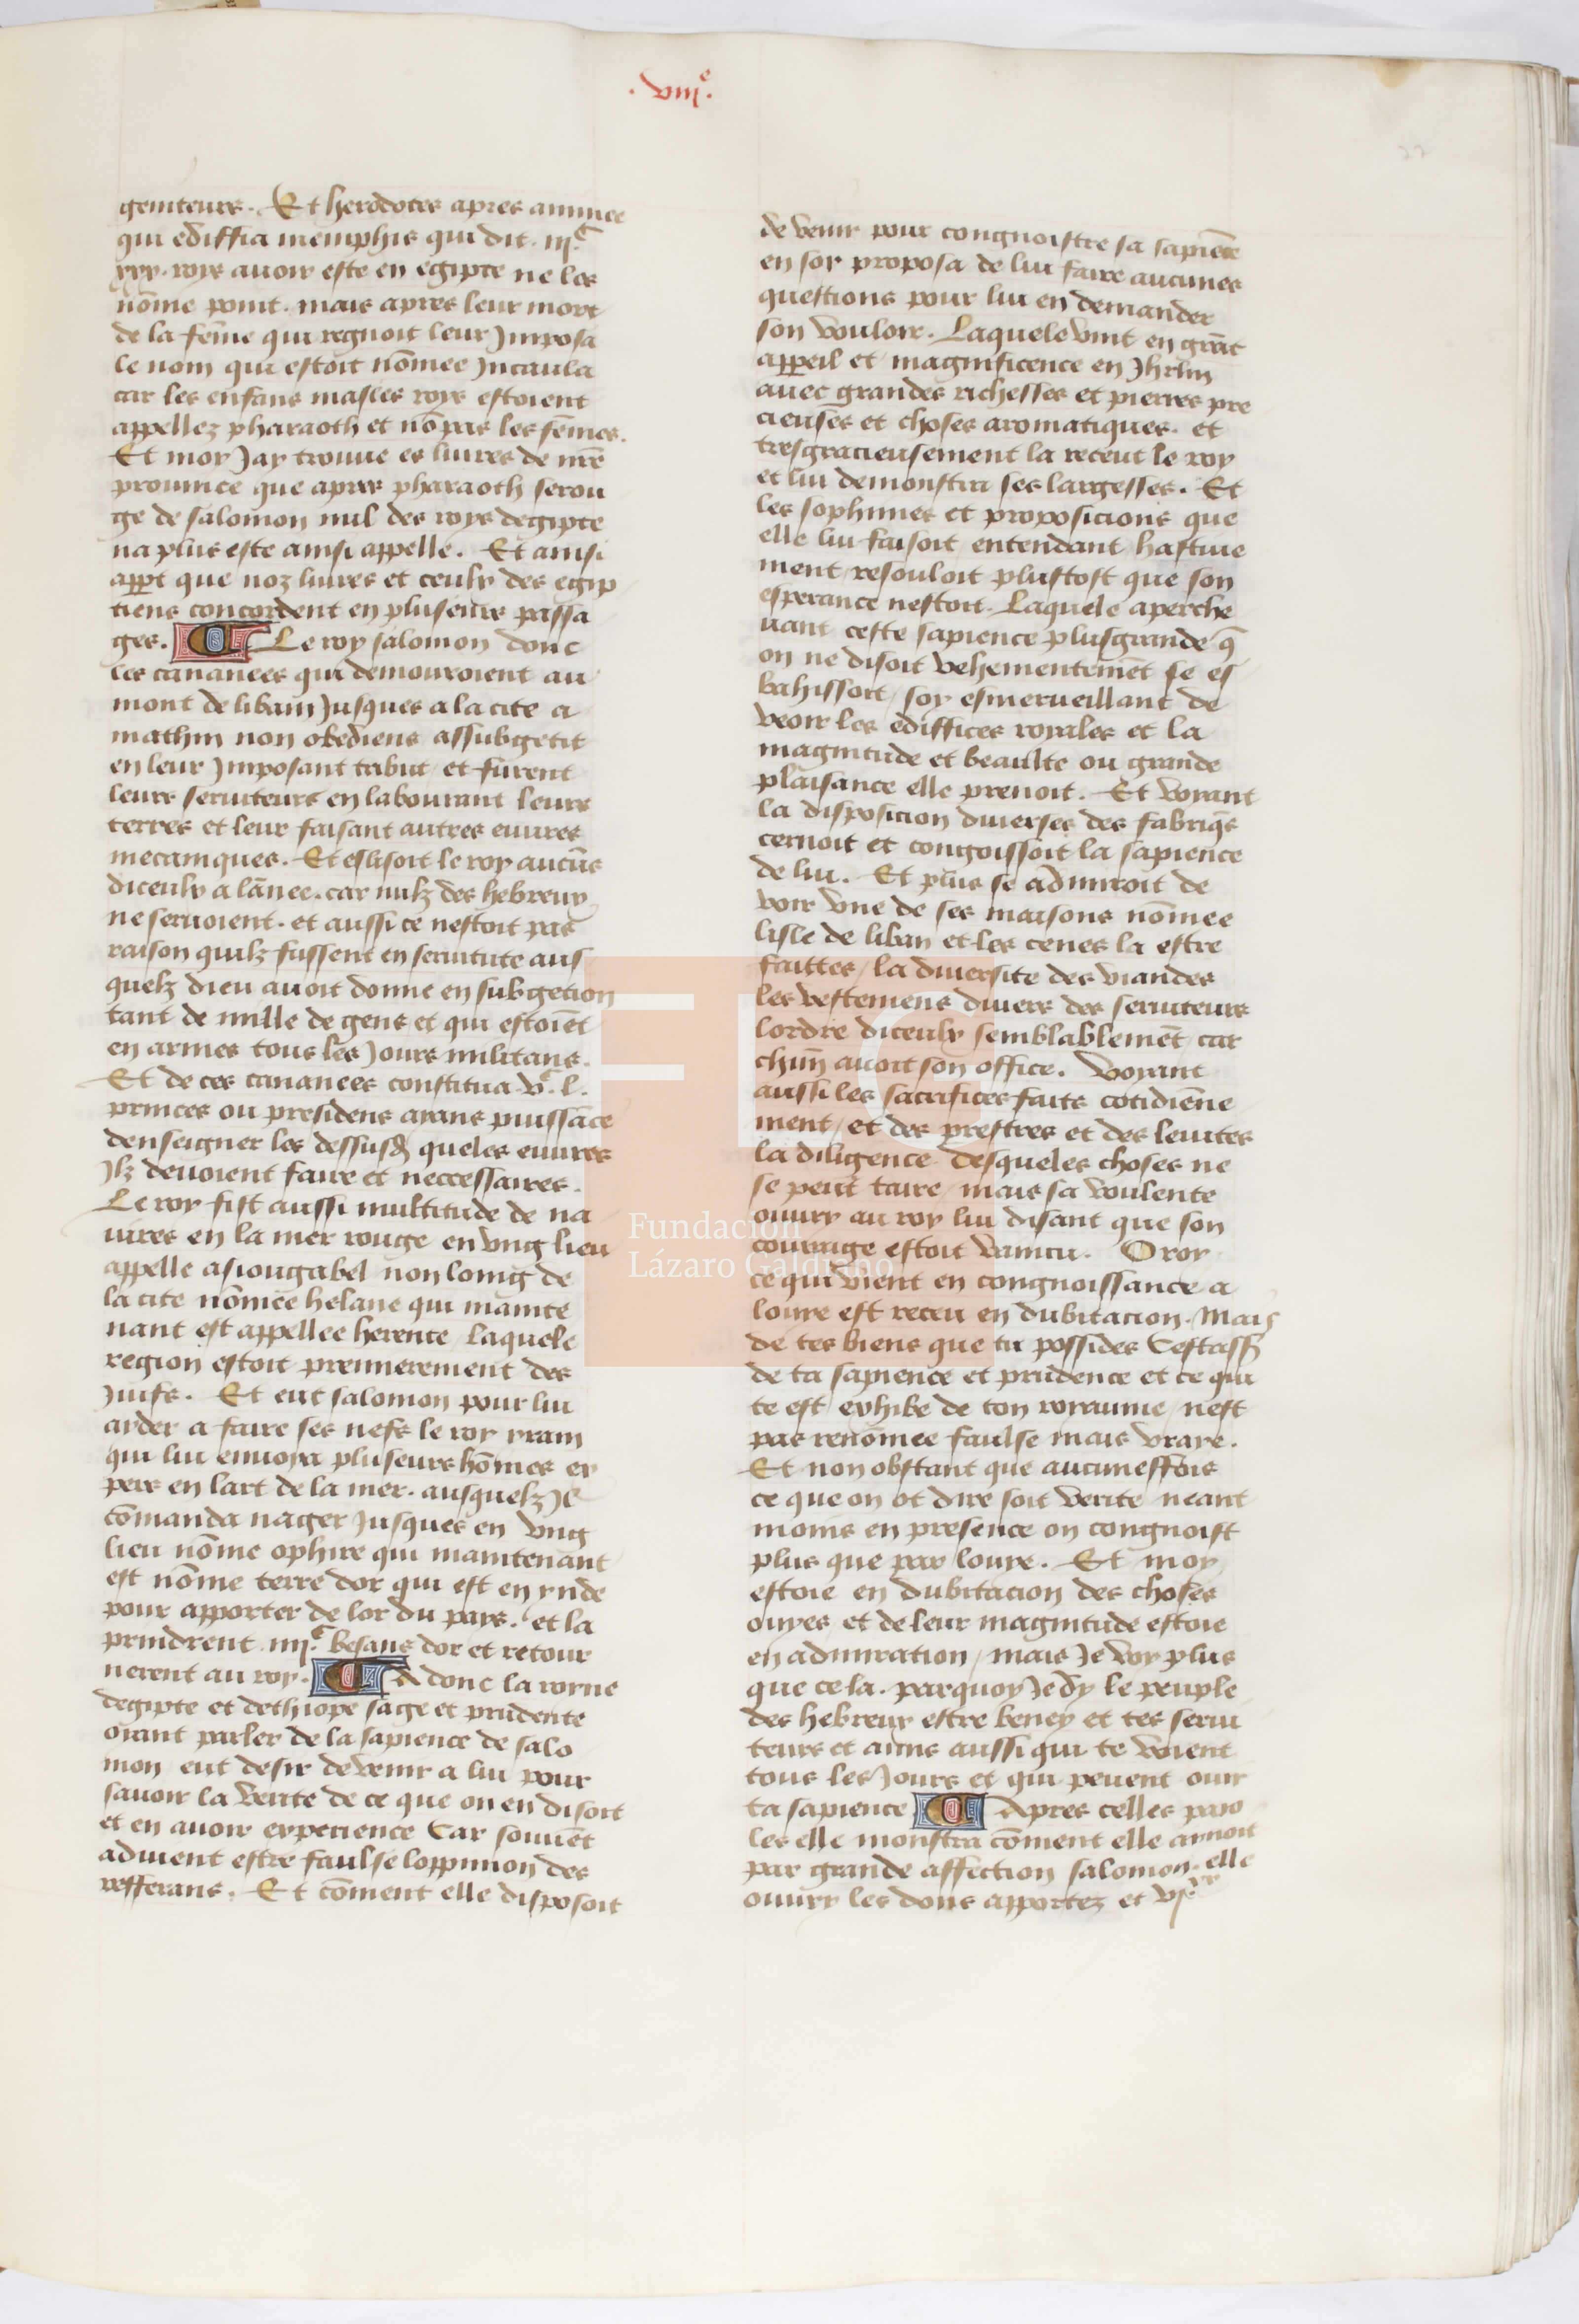 .viiie.
22
geniteurs. Et herodotes apres ammee
qui ediffia memphis qui dit .iijc
xxx. roys avoir este en egipte ne les
nōme point. mais apres leur mort
de la fēme qui regnoit leur Imposa
le nom qui estoit nōmee Incaula
car les enfans masles roys estoient
appellez pharaoth et nō pas les fēmes.
Et moy Jay trouue es liures de nrē
prouince que apres pharaoth serou
ge de salomon nul des roys degipte
na plus este ainsi appelle. Et ainsi
appt que noz liures et ceulx des egip
tiens concordent en pluseurs passa
ges. Le roy salomon donc
les cananees qui demouroient au
mont de libam Jusques a la cite a
mathin non obediens assubgetit
en leur Imposant tribut et furent
leurs seruiteurs en labourant leurs
terres et leur faisant autres euures
mecaniques. Et eslisoit le roy aucūs
diceulx a lānee. car nulz des hebreux
ne seruoient. et aussi ce nestoit pas
raison quilz fussent en seruitute aus
quelz dieu auoit donne en subgetion
tant de mille de gens et qui estoiēt
en armes tous les Jours militans.
Et de ces cananees constitua vc. l.
princes ou presidens ayans puissāce
denseigner les dessusd queles euures
Ilz deuoient faire et neccessaires.
Le roy fist aussi multitude de na
uires en la mer rouge en vng lieu
appelle asiongabel non loing de
la cite nōmee helane qui mainte
nant est appellee herence laquele
region estoit premierement des
Juifs. Et eut salomon pour lui
ayder a faire ses nefs le roy yram
qui lui enuoya pluseurs hōmes ex
pers en lart de la mer. ausquelz Il
cōmanda nager Jusques en vng
lieu nōme ophire qui maintenant
est nōme terre dor qui est en ynde
pour apporter de lor du pays. et la
prindrent .iiijc besans dor et retour
nerent au roy. A donc la royne
degipte et dethiope sage et prudente
oiant parler de la sapience de salo
mon eut desir de venir a lui pour
sauoir la verite de ce que on en disoit
et en auoir experience Car souuēt
aduient estre faulse loppinion des
refferans. Et cōment elle disposoit
de venir pour congnoistre sa sapiēce
en soy proposa de lui faire aucunes
questions pour lui en demander
son vouloir. Laquele vint en grāt
appeil et magnificence en Jhrlm
auec grandes richesses et pierres pre
cieuses et choses aromatiques. et
tresgracieusement la receut le roy
et lui demonstra ses largesses. Et
les sophimes et proposicions que
elle lui faisoit entendant hastiue
ment resouloit plustost que son
esperance nestoit. Laquele aperche
uant ceste sapience plusgrande q̄
on ne disoit vehementemēt se es
bahissoit / soy esmerueillant de
veoir les ediffices royales et la
magnitude et beaulte ou grande
plaisance elle prenoit. Et voyant
la disposicion diuerses des fabriq̄s
cernoit et congoissoit la sapience
de lui. Et plus se admiroit de
voir vne de ses maisons nōmee
lisle de liban et les cenes la estre
faittes / la diuersite des viandes
les vestemens diuers des seruiteurs
lordre diceulx semblablemēt car
chūn auoit son office. Voyant
aussi les sacrifices faits cotidiēne
ment / et des prestres et des leuites
la diligence desqueles choses ne
se peut taire / mais sa voulente
ouury au roy lui disant que son
courage estoit vaincu. O roy
ce qui vient en congnoissance a
louye est receu en dubitacion. Mais
de tes biens que tu possides Cestass
de ta sapience et prudence et ce qui
te est exhibe de ton royaume nest
pas renōmee faulse mais vraye.
Et non obstant que aucuneffois
ce que on ot dire soit verite neant
moins en presence on congnoist
plus que par louye. Et moy
estoie en dubitacion des choses
ouyes et de leur magnitude estoie
en admiration / mais Je voy plus
que cela. parquoy Je dy le peuple
des hebreux estre beney et tes serui
teurs et amis aussi qui te voient
tous les Jours et qui peuent ouir
ta sapience Apres celles paro
les elle monstra cōment elle aymoit
par grande affection salomon. elle
ouury les dons apportez et
Fundación
Lázaro Galdiano